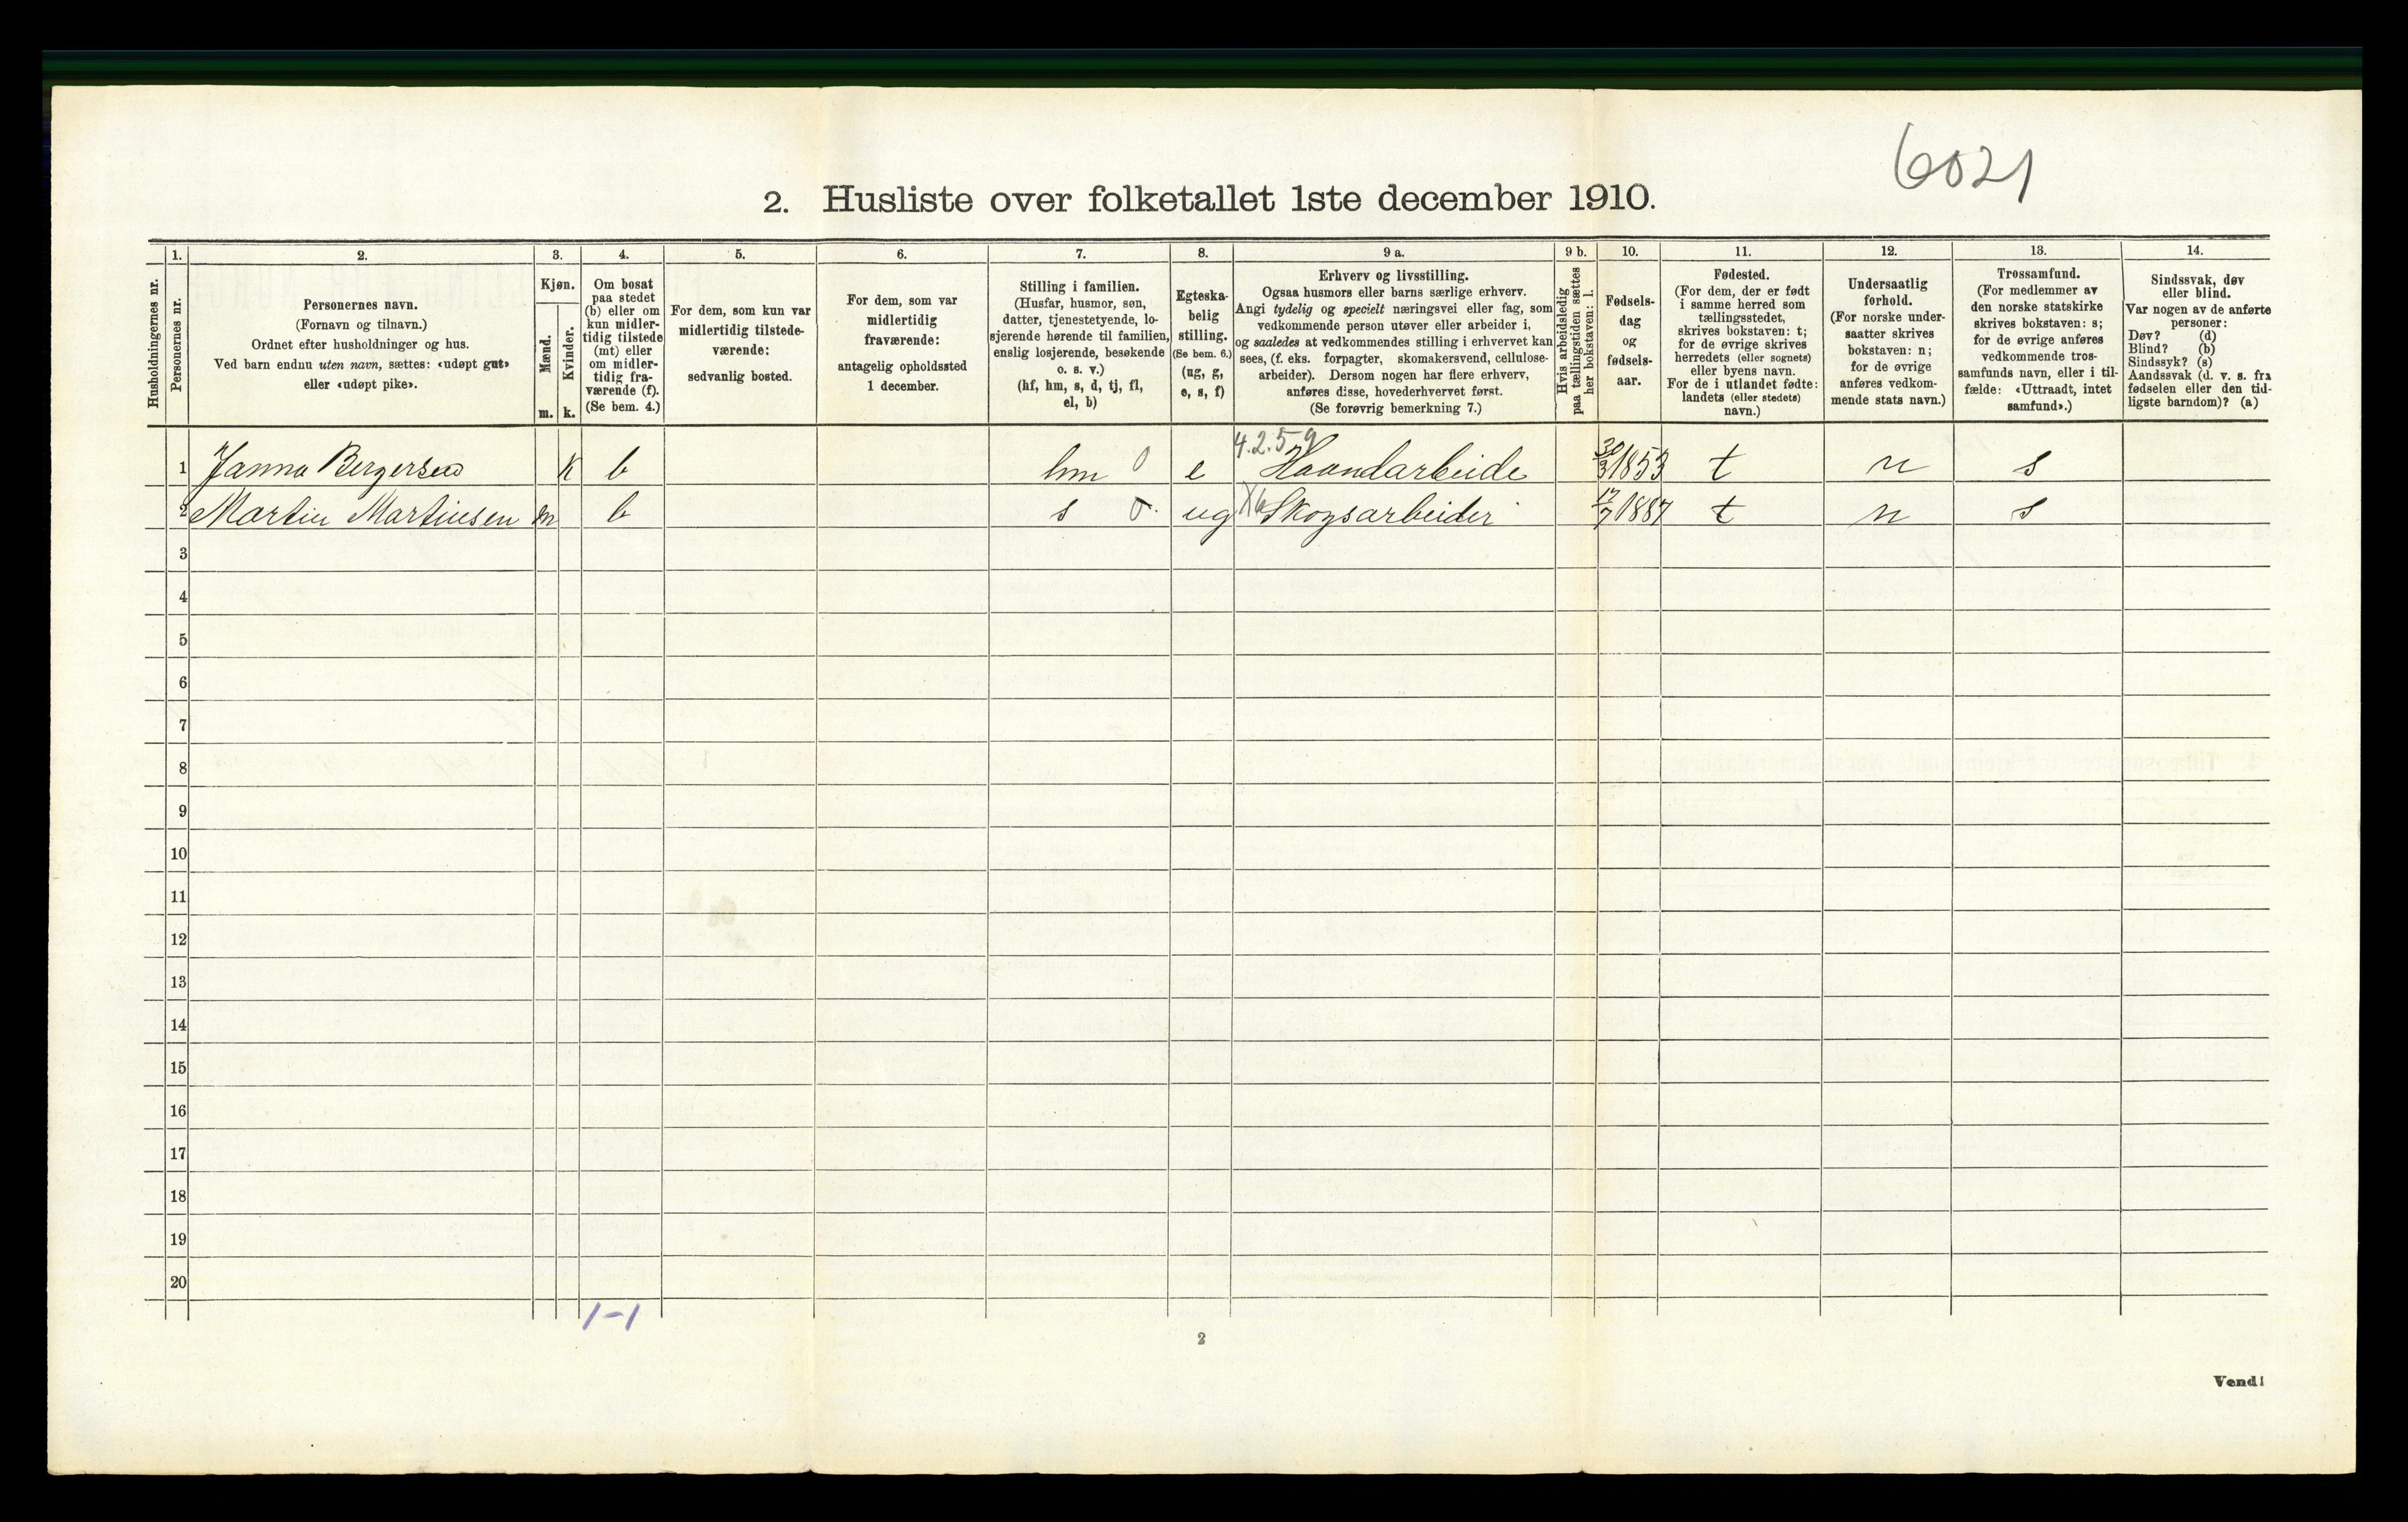 6021
2. Husliste over folketallet 1ste december 1910.
1. 2. 3. 4. 5. 6. 7. 8. 9 a. 9 b. 10. 11. 12. 13. 14.
Husholdningernes nr.
Personernes nr.
Personernes navn.
(Fornavn og tilnavn.)
Ordnet efter husholdninger og hus.
Ved barn endnu uten navn, sættes: «udøpt gut»
eller «udøpt pike».
Kjøn.
Mænd.
m.
Kvinder.
k.
Om bosat
paa stedet
(b) eller om
kun midler-
tidig tilstede
(mt) eller
om midler-
tidig fra-
værende (f).
(Se bem. 4.)
For dem, som kun var
midlertidig tilstede-
værende:
sedvanlig bosted.
For dem, som var
midlertidig
fraværende:
antagelig opholdssted
1 december.
Stilling i familien.
(Husfar, husmor, søn,
datter, tjenestetyende, lo-
sjerende hørende til familien,
enslig losjerende, besøkende
o. s. v.)
(hf, hm, s, d, tj, fl,
el, b)
Egteska-
belig
stilling.
(Se bem. 6.)
(ug, g,
e, s, f)
Erhverv og livsstilling.
Ogsaa husmors eller barns særlige erhverv.
Angi tydelig og specielt næringsvei eller fag, som
vedkommende person utøver eller arbeider i,
og saaledes at vedkommendes stilling i erhvervet kan
sees, (f. eks. forpagter, skomakersvend, cellulose-
arbeider). Dersom nogen har flere erhverv,
anføres disse, hovederhvervet først.
(Se forøvrig bemerkning 7.)
Hvis arbeidsledig
paa tællingstiden sættes
her bokstaven: l.
Fødsels-
dag
og
fødsels-
aar.
Fødested.
(For dem, der er født
i samme herred som
tællingsstedet,
skrives bokstaven: t;
for de øvrige skrives
herredets (eller sognets)
eller byens navn.
For de i utlandet fødte:
landets (eller stedets)
navn.)
Undersaatlig
forhold.
(For norske under-
saatter skrives
bokstaven: n;
for de øvrige
anføres vedkom-
mende stats navn.)
Trossamfund.
(For medlemmer av
den norske statskirke
skrives bokstaven: s;
for de øvrige anføres
vedkommende tros-
samfunds navn, eller i til-
fælde: «Uttraadt, intet
samfund».)
Sindssvak, døv
eller blind.
Var nogen av de anførte
personer:
Døv? (d)
Blind? (b)
Sindssyk? (s)
Aandssvak (d. v. s. fra
fødselen eller den tid-
ligste barndom)? (a)
4.2.59
1 Janna Bergersen K b hm 0 e Haandarbeide 30/3 1853 t n s
2 Martin Martinsen m b s ug Skogsarbeider 17/7 1887 t n s
3
4
5
6
7
8
9
10
11
12
13
14
15
16
17
18
19
20
1-1
2
Vend!